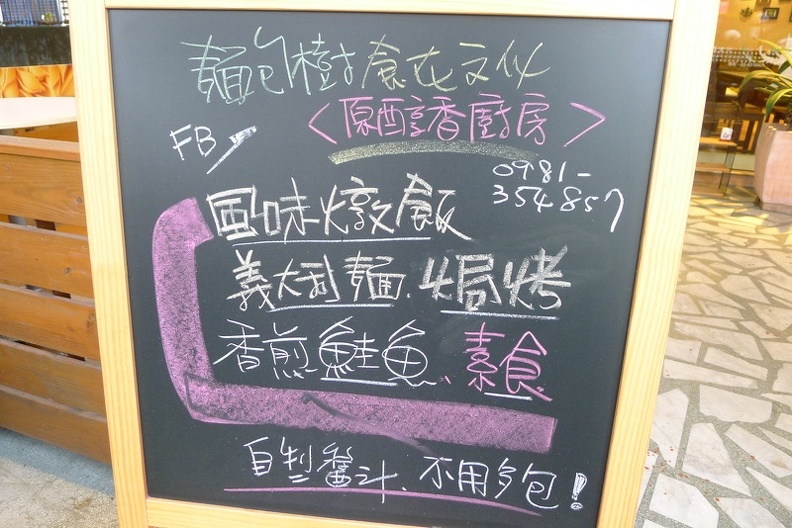 麵包樹食在文化
<原醇香廚房>
FB
0981-
354857
風味燉飯
義大利麵、焗烤
香煎鮭魚、素食
自制醬汁、不用多包!